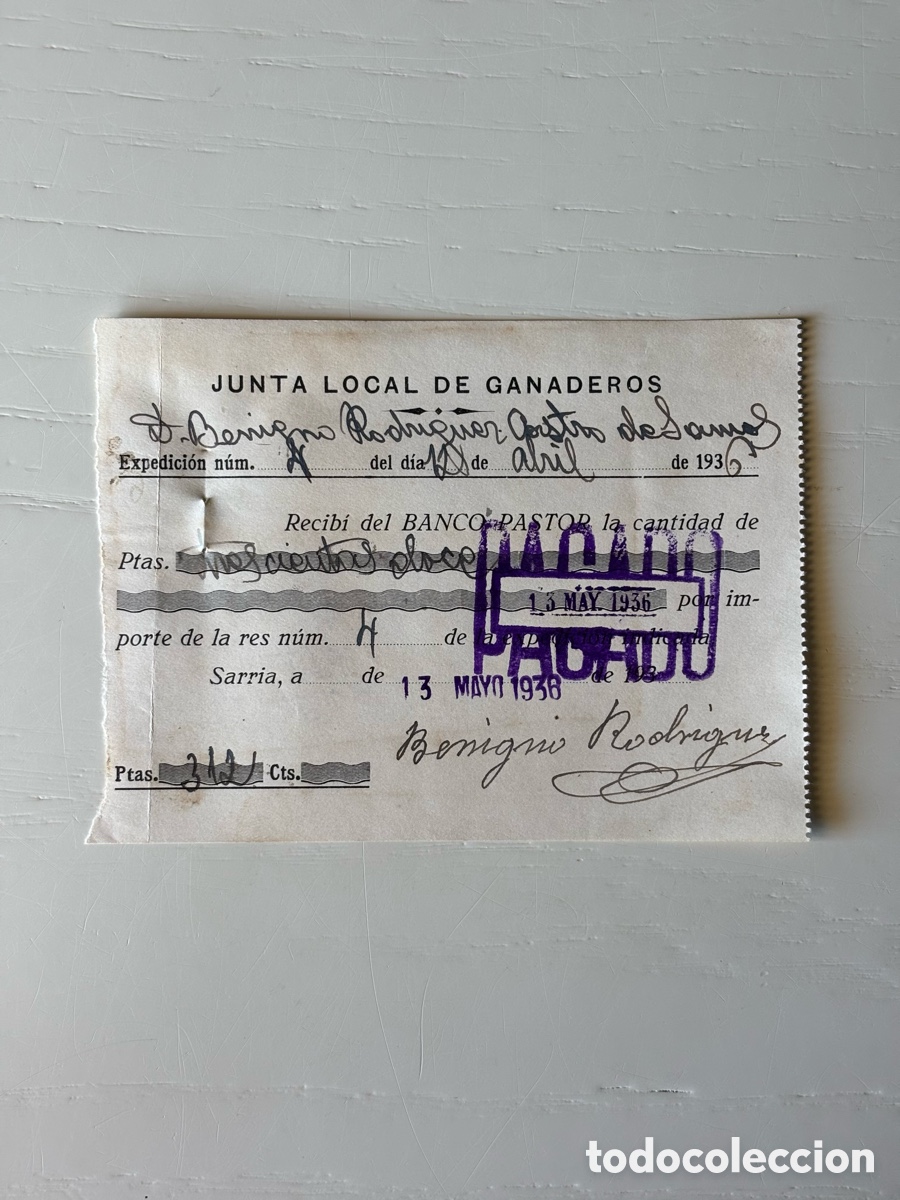 JUNTA LOCAL DE GANADEROS
D. Benigno Rodriguez, Castro de Samos
Expedición núm. 4 del día de abril de 1936
Recibí del BANCO PASTOR la cantidad de
Ptas. trescientas doce
PAGADO
13 MAY. 1936
PAGADO
por im-
porte de la res núm. 4 de la expedición indicada
Sarria, a de de 193
13 MAYO 1936
Benigno Rodriguez
Ptas. 312 Cts.
todocoleccion